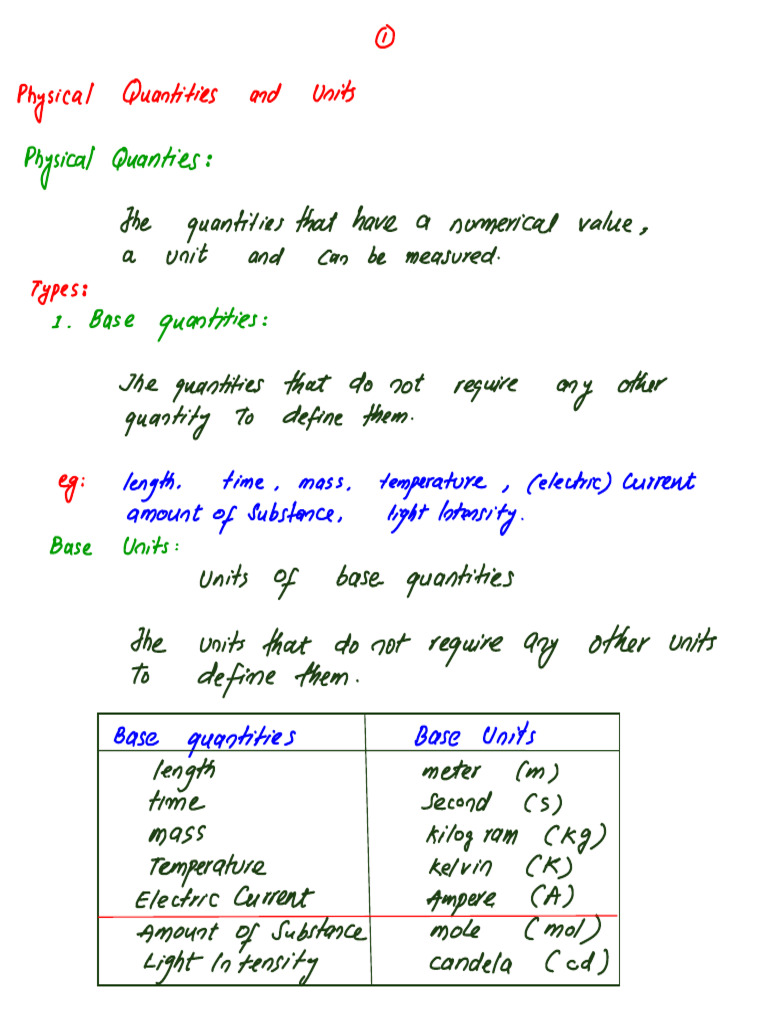 1
Physical Quantities and Units
Physical Quanties:
The quantities that have a numerical value,
a unit and can be measured.
Types:
1. Base quantities:
The quantities that do not require any other
quantity to define them.
eg: length, time, mass, temperature, (electric) Current
amount of substance, light Intensity.
Base Units:
Units of base quantities
The units that do not require any other units
to define them.
Base quantities Base Units
length meter (m)
time second (s)
mass kilogram (kg)
Temperature kelvin (K)
Electric Current Ampere (A)
Amount of Substance mole (mol)
Light Intensity candela (cd)